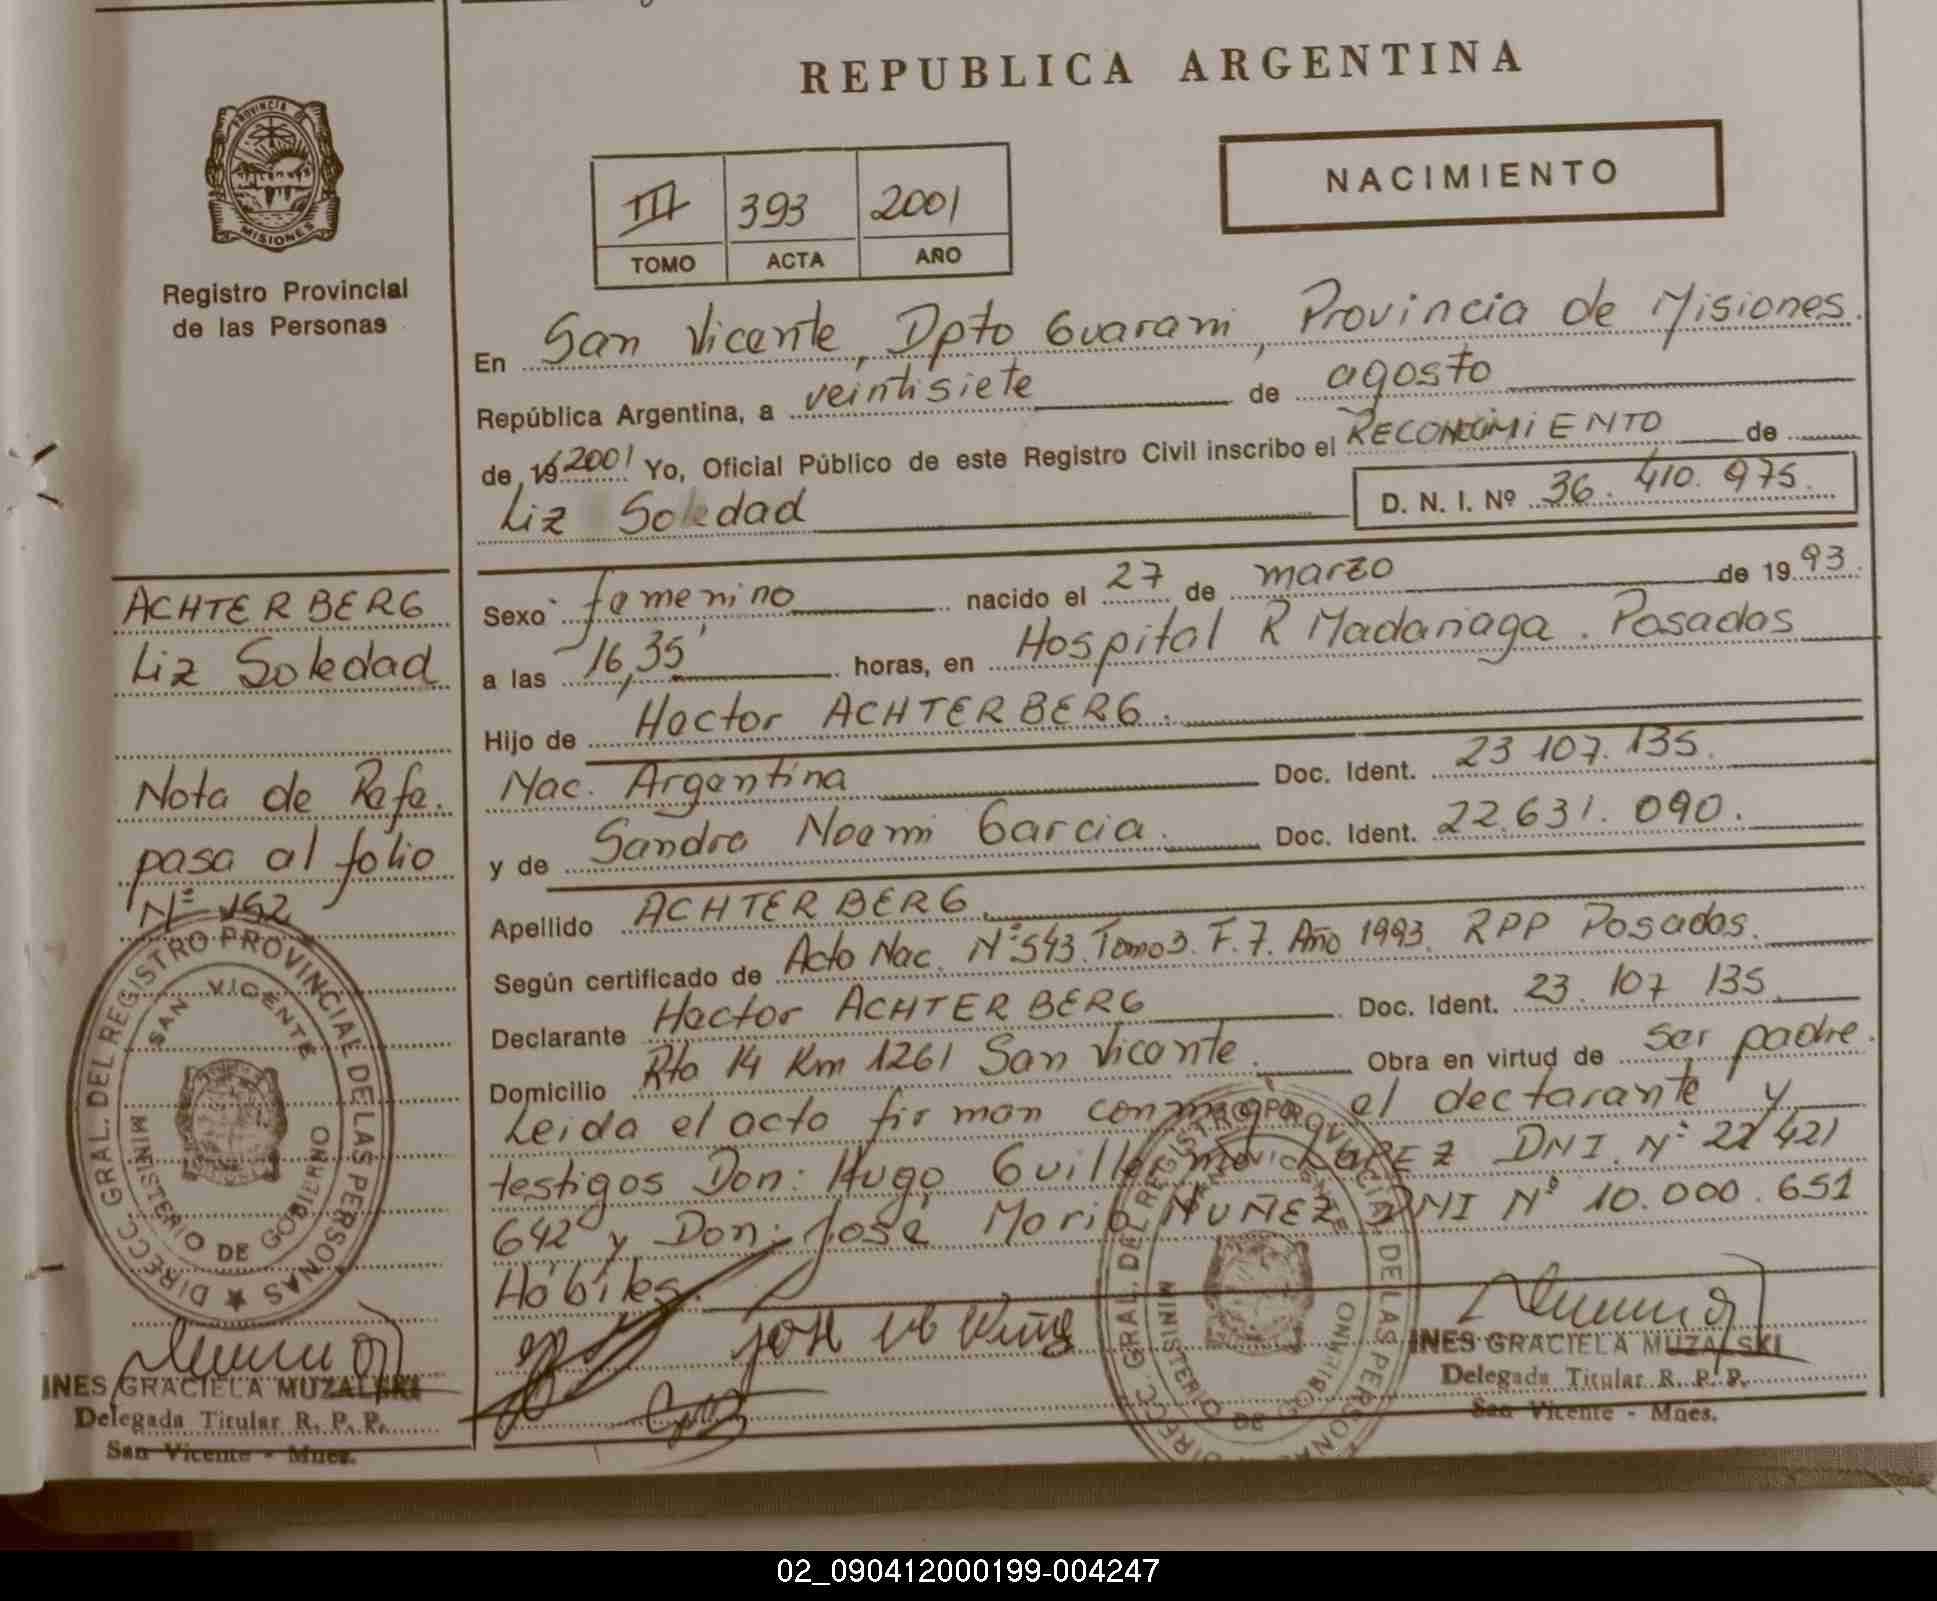 REPUBLICA ARGENTINA
PROVINCIA DE
MISIONES
Registro Provincial
de las Personas
III 393 2001
TOMO ACTA AÑO
NACIMIENTO
En San Vicente, Dpto Guarani, Provincia de Misiones.
República Argentina, a veintisiete de agosto
de 19 2001 Yo, Oficial Público de este Registro Civil inscribo el RECONOCIMIENTO de
Liz Soledad D. N. I. Nº 36. 410. 975.
Sexo femenino nacido el 27 de marzo de 19 93
a las 16,35 horas, en Hospital R Madariaga. Posadas
Hijo de Hector ACHTERBERG.
Nac. Argentina Doc. Ident. 23 107. 135.
y de Sandra Noemi Garcia. Doc. Ident. 22.631. 090.
Apellido ACHTERBERG.
Según certificado de Acta Nac. Nº 543. Tomo 3. F. 7. Año 1993. RPP Posadas.
Declarante Hector ACHTERBERG Doc. Ident. 23. 107 135
Domicilio Rta 14 Km 1261 San Vicente. Obra en virtud de ser padre.
Leida el acta firman conmigo el declarante y
testigos Don: Hugo Guillermo LOPEZ DNI. Nº 22 421
642 y Don: José Mario NUÑEZ DNI Nº 10.000.651
Hábiles.
ACHTERBERG
Liz Soledad
Nota de Refe.
pasa al folio
Nº 192
DIRECC. GRAL. DEL REGISTRO PROVINCIAL DE LAS PERSONAS
SAN VICENTE
MINISTERIO DE GOBIERNO
INES GRACIELA MUZALSKI
Delegada Titular R. P. P.
San Vicente - Mnes.
DIRECC. GRAL. DEL REGISTRO PROVINCIAL DE LAS PERSONAS
MINISTERIO DE GOBIERNO
INES GRACIELA MUZALSKI
Delegada Titular R. P. P.
San Vicente - Mnes.
02_090412000199-004247